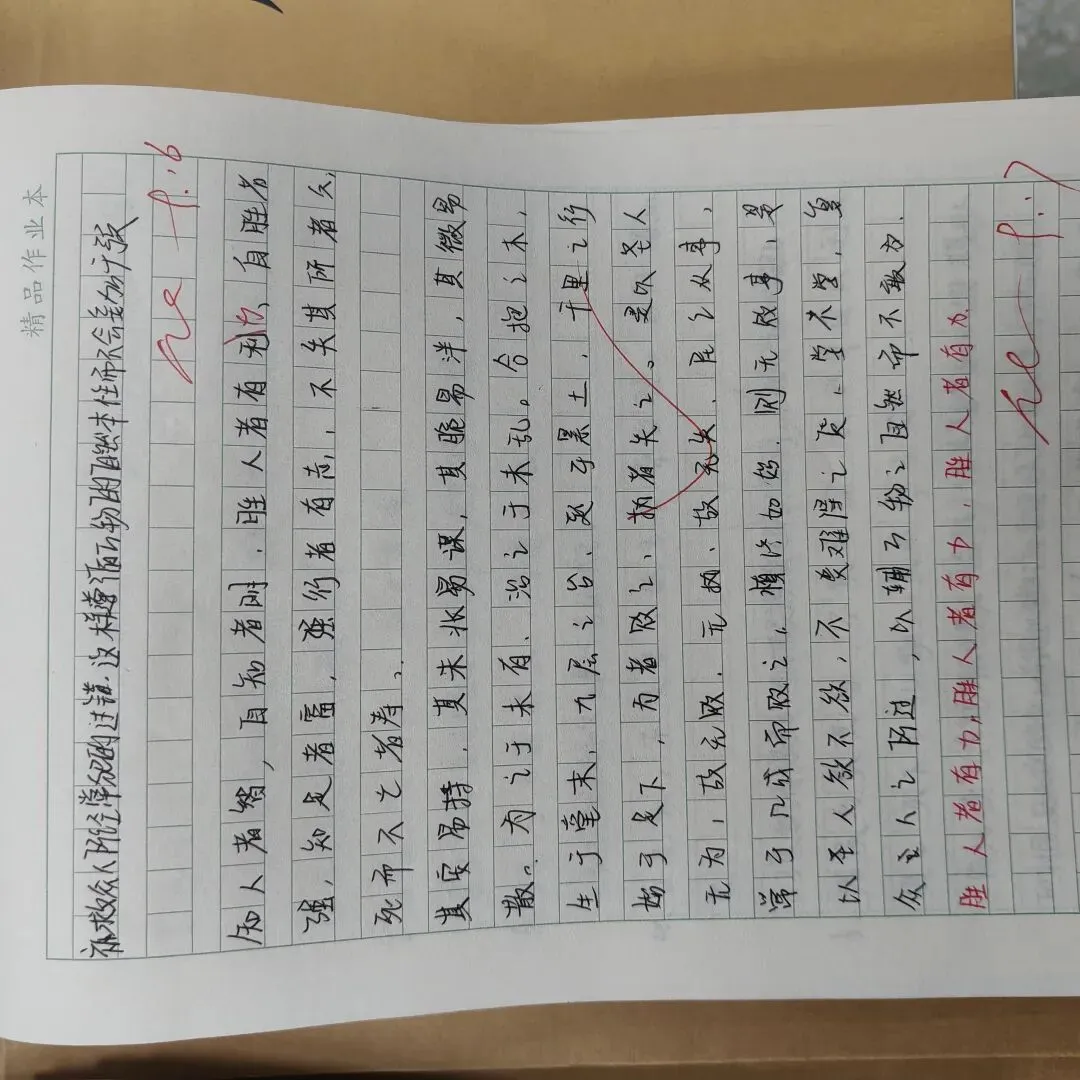 精品作业本
补救众人所经常犯的过错.这样遵循万物的自然本性而不会妄加干预
知人者智,自知者明.胜人者有力,自胜者
强,知足者富,强行者有志,不失其所者久,
死而不亡者寿。
其安易持,其未兆易谋,其脆易泮,其微易
散。为之于未有、治之于未乱。合抱之木,
生于毫末,九层之台、起于累土.千里之行
始于足下,为者败之、执者失之。是以圣人
无为,故无败.无执、故无失.民之从事,
常于几成而败之。慎终如始.则无败事,是
以圣人欲不欲,不贵难得之货、学不学,复
众人之所过,以辅万物之自然而不敢为.
胜人者有力,胜人者有力.胜人者有力.